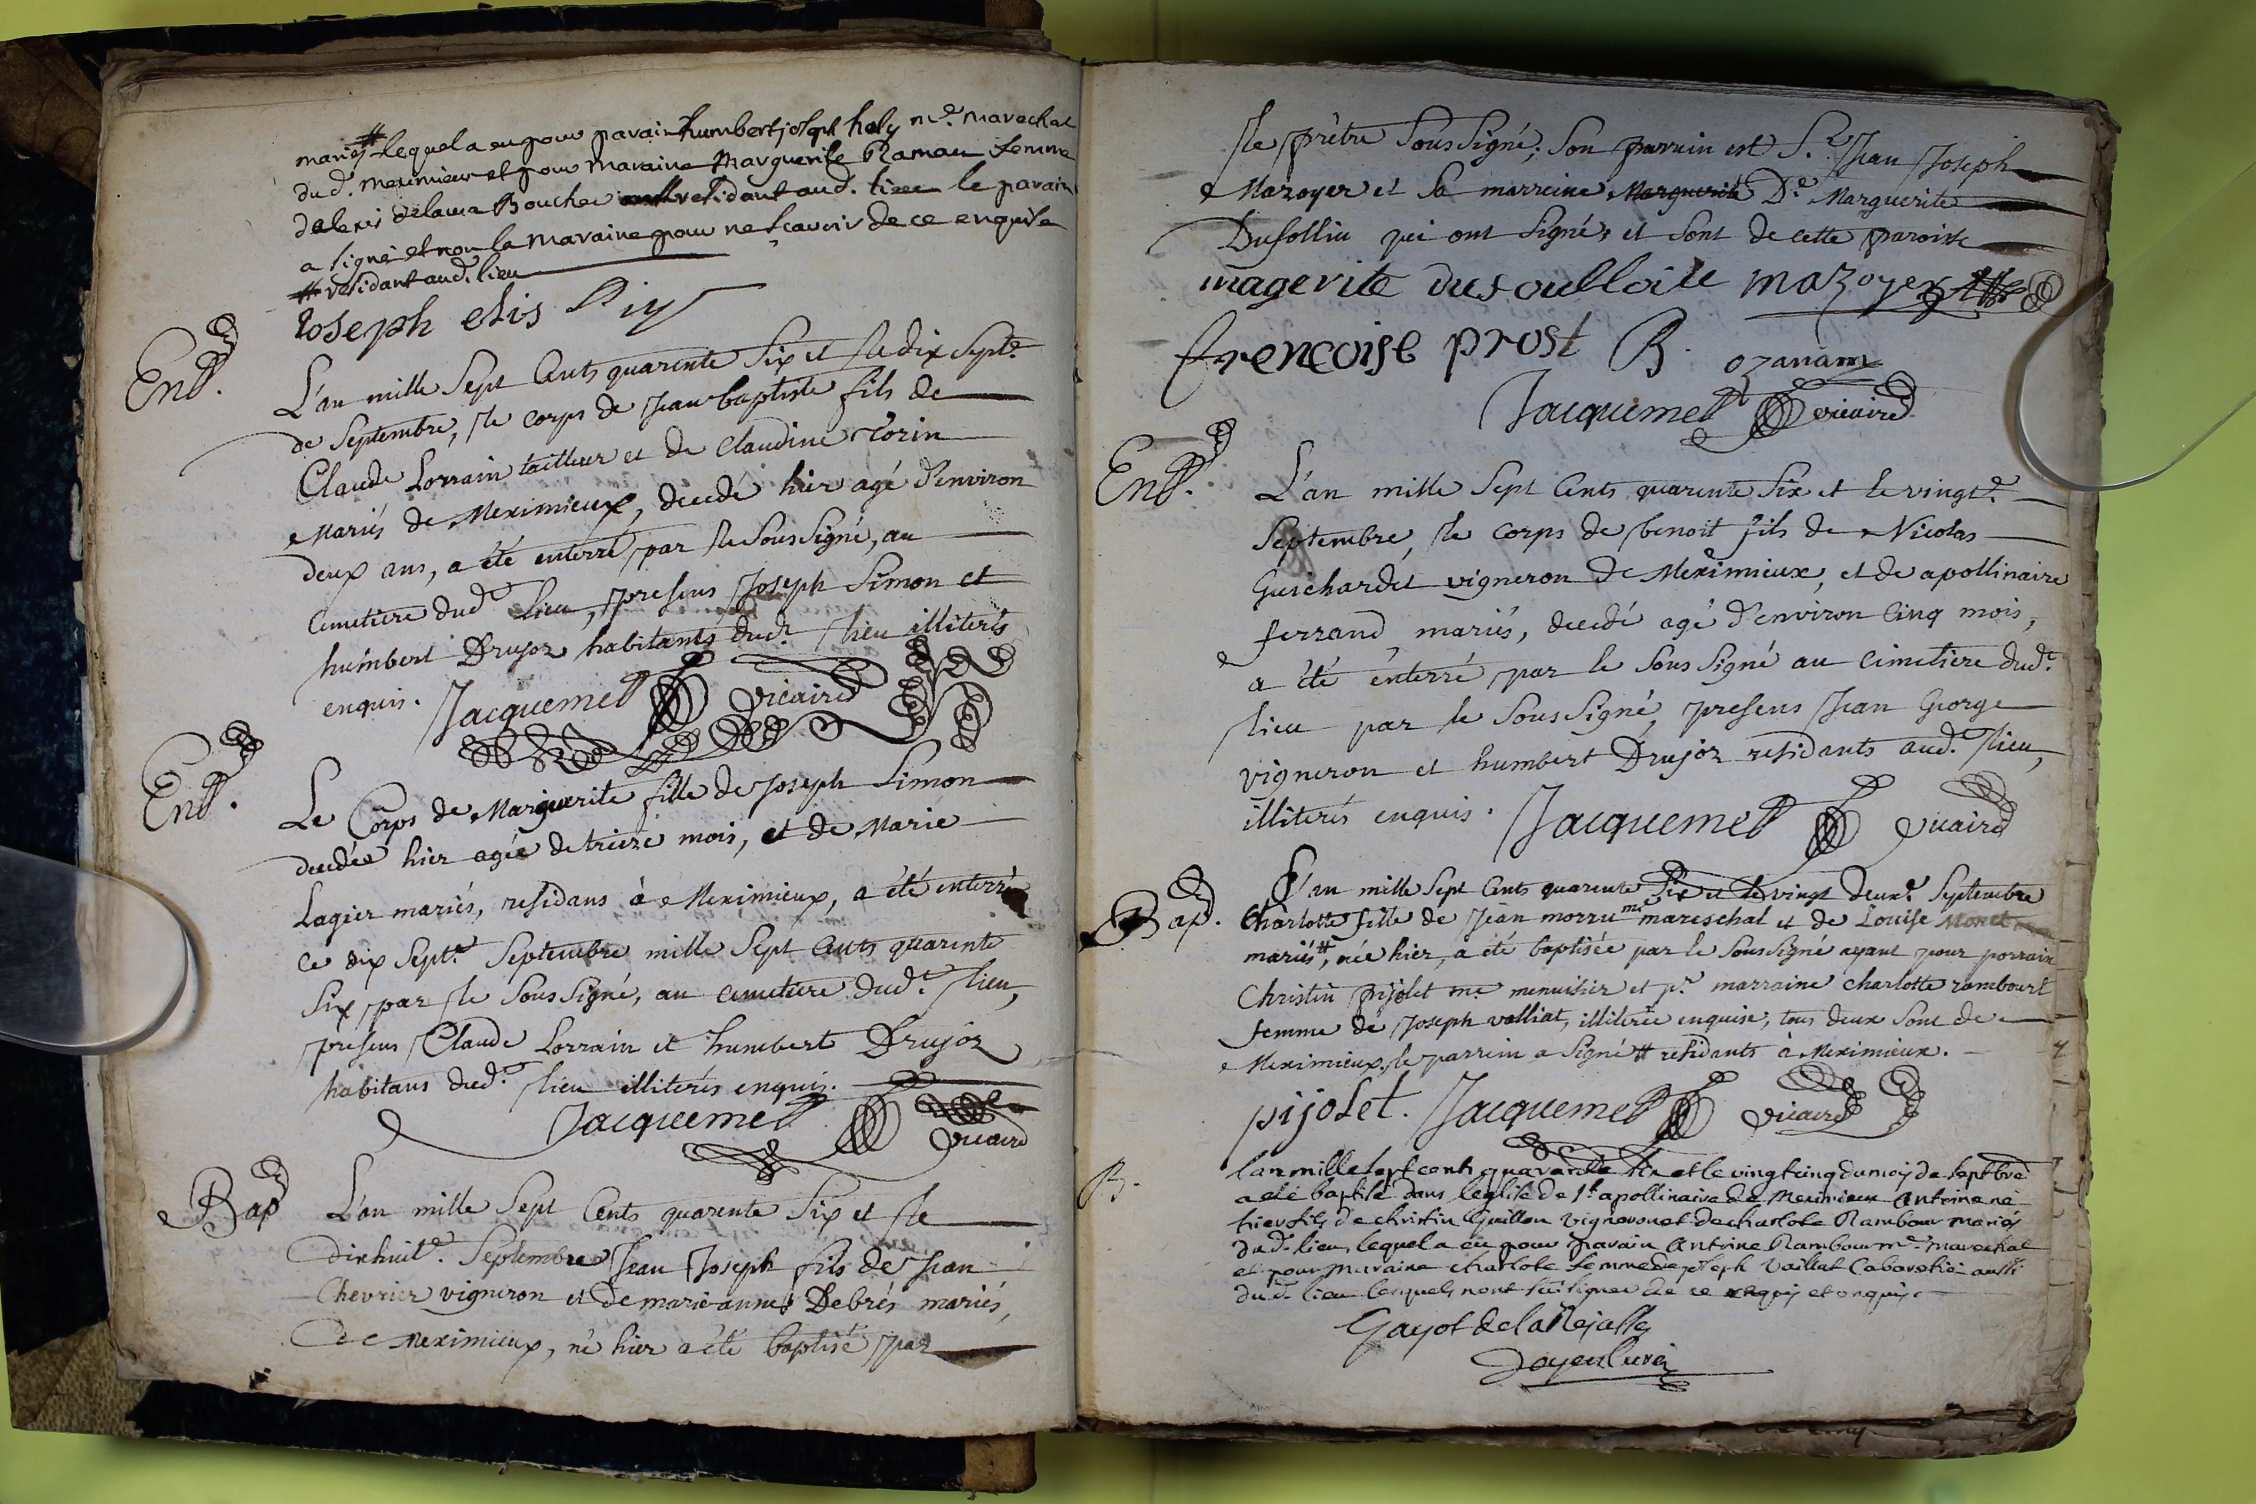 mariés # lequel a eu pour parain humbert joseph hely m.e marechal
dud. meximieux et pour maraine Marguerite Ramau femme
dalexis delaua Boucher residant aud. lieu le parain
a signé et non la maraine pour ne scavoir de ce enquise
# residant aud. lieu
Joseph elis
Ent.
L'an mille Sept Cents quarente Six et le dix Sept.e
de Septembre, le corps de Jean baptiste fils de
Claude Lorrain tailleur et de Claudine Corin
Mariés de Meximieux, decedé hier agé d'environ
deux ans, a été enterré par le Sous Signé, au
Cimetiere dud.t lieu, presens Joseph Simon et
humbert Drujoz habitants dud.t lieu illiterés
enquis. Jacquemet vicaire
Ent.
Le Corps de Marguerite fille de Joseph Simon
decédée hier agée de treize mois, et de Marie
Lagier mariés, residans à Meximieux, a été enterré
ce dix Sept.e Septembre mille Sept Cents quarente
Six par le Sous Signé, au cimetiere dud.t lieu,
presens Claude Lorrain et humbert Drujoz
habitans dud.t lieu illiterés enquis.
Jacquemet vicaire
Bap
L'an mille Sept Cents quarente Six et le
dixhuit.e Septembre Jean Joseph fils de Jean
Chevrier vigneron et de marie anne Debrés mariés,
de Meximieux, né hier a été baptisé par
le prêtre Sous Signé, Son parrain est S.r Jean Joseph
Mazoyer et Sa marreine Marguerite D.e Marguerite
Dusollin qui ont Signé, et Sont de cette paroisse
magerite dusoulloile mazoyer
frencoise prost B. ozanam
Jacquemet vicaire
Ent.
L'an mille Sept Cents quarente Six et le vingt.e
Septembre, le corps de benoit fils de Nicolas
Guichardet vigneron de Meximieux, et de apollinaire
ferrand mariés, decedé agé d'environ Cinq mois,
a été enterré par le Sous Signé au Cimetiere dud.t
lieu par le Sous Signé, presens Jean George
vigneron et humbert Drujoz residants aud.t lieu,
illiterés enquis. Jacquemet vicaire
Bap.
L'an mille Sept Cents quarente Six et le vingt deux.e Septembre
Charlotte fille de Jean morru m.e mareschal et de Louise Monet
mariés #, née hier, a été baptisée par le Sous Signé ayant pour parrain
Christin pijolet m.e menuisier et p.r marraine charlotte rambourt
femme de Joseph valliat, illiterée enquise, tous deux Sont de
Meximieux, le parrein a Signé # residants à Meximieux.
pijolet. Jacquemet vicaire
B.
l'an mille sept cents quarante six et le vingt cinq du mois de septbre
a eté baptisé dans leglise de S.t apollinaire de Meximieux Antoine né
hier fils de christin Guillon vigneron et de charlote Rambour mariés
dud. lieu, lequel a eu pour parain Antoine Rambour m.e marechal
et pour maraine charlote femme de joseph Vaillat Cabaretier aussi
dud. lieu lesquels n'ont sçu signer de ce enquis et requis
Gayot de la Rejasse
doyen curé